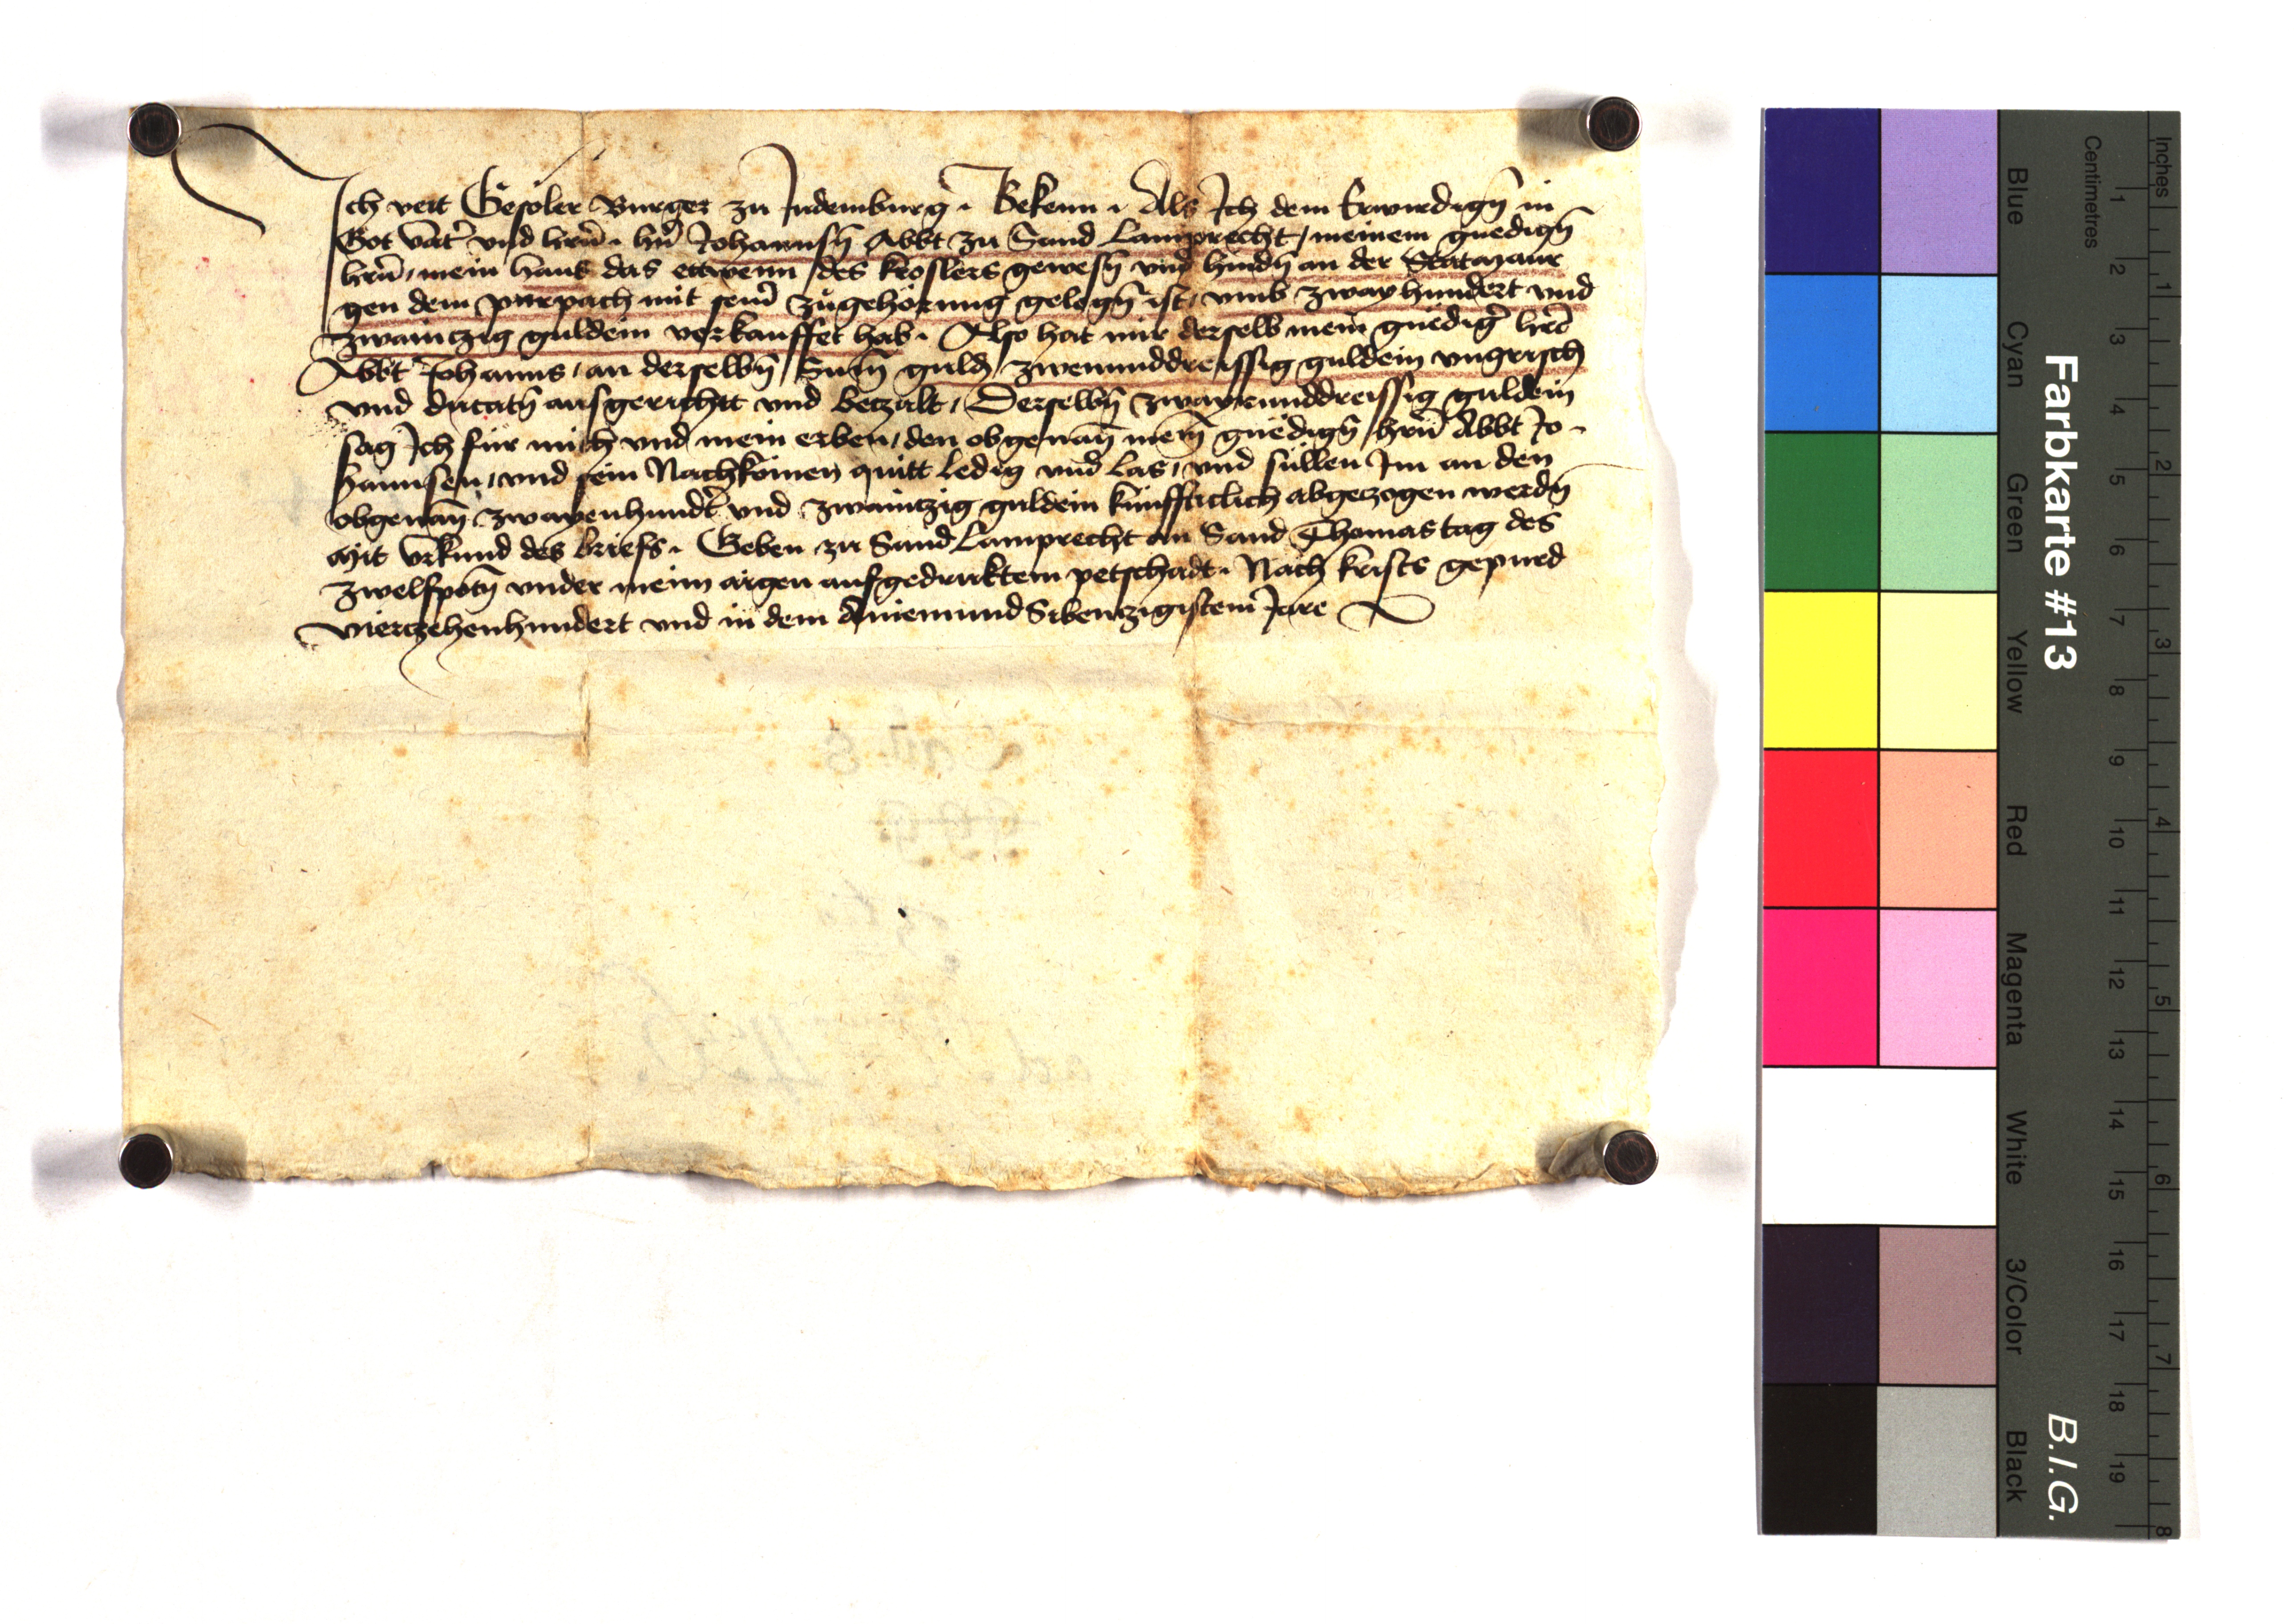 Ich veit Gesoler Burger zu Judemburg̃. Bekenn. Als Ich dem Erwirdign̄ in
Got vatˀ vnd hrn̄. hn̄ Johannsn̄ Abbt zu Sand Lamprecht / meinem gnedign̄
hrn̄ / mein haus das ettwenn des kroslers gewesn̄ vnd hindn̄ an der Statmaur
gen dem purpach mit seim̄ zugehörung gelegn̄ ist / vmb zwayhundert vnd
zwaintzig guldein verkauffet hab. Also hat mir derselb mein gnedigˀ hrr̄
Abbt Johanns / an derselbn̄ Sum̄ guld̄ zwenunddreissig guldein vngrisch
vnd ducatn̄ ausgericht vnd betzalt / Derselbn̄ zwayenunddreissig guldein
sag Ich für mich vnd mein erben / den obgenan̄ mein̄ gnëdign̄ hrn̄ Abbt Jo-
hannsen / vnd sein Nachkomen quitt ledig vnd las / vnd süllen Im an den
obgenan̄ zwayenhundˀt vnd zwaintzig guldein künffticlich abgetzogen werdn̄
Mit vrkund des briefs. Geben zu Sand Lamprecht an Sand Thomas tag des
zwelfpotn̄ vnder meim aigen aufgedrucktem petschadt. Nach krists gepurd
viertzehenhundert vnd in dem Aniemundsibentzigistem Jare
Farbkarte #13
B.I.G.
Inches
Centimetres
Blue
Cyan
Green
Yellow
Red
Magenta
White
3/Color
Black
1 2 3 4 5 6 7 8 9 10 11 12 13 14 15 16 17 18 19
1 2 3 4 5 6 7 8